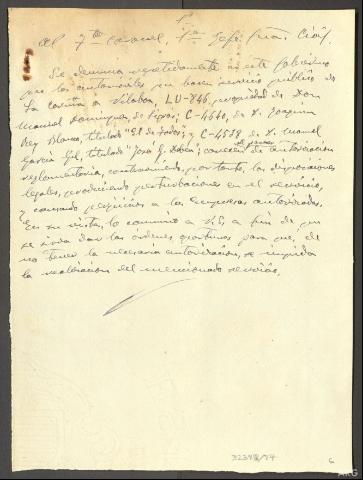 al Tte coronel, 1er Jefe Guar. Civil.
Se denuncia repetidamente a este Gobierno
que los automóviles que hacen servicio público de
La Coruña a Vilaboa, LU-846, propiedad de Don
Manuel Domínguez, de; C-4640, de D. Joaquín
Rey Blanco, titulado "El de Todos"; y C-4538, de D. Manuel
García Gil, titulado "José G.", carecen de autorización
reglamentaria, contraviniendo, por tanto, las disposiciones
legales, produciendo perturbaciones en el servicio,
y causando perjuicios a las empresas autorizadas.
En su vista, lo comunico a V.S., a fin de que
se sirva dar las órdenes oportunas para que, de
no tener la necesaria autorización, se impida
la realización del mencionado servicio.
6